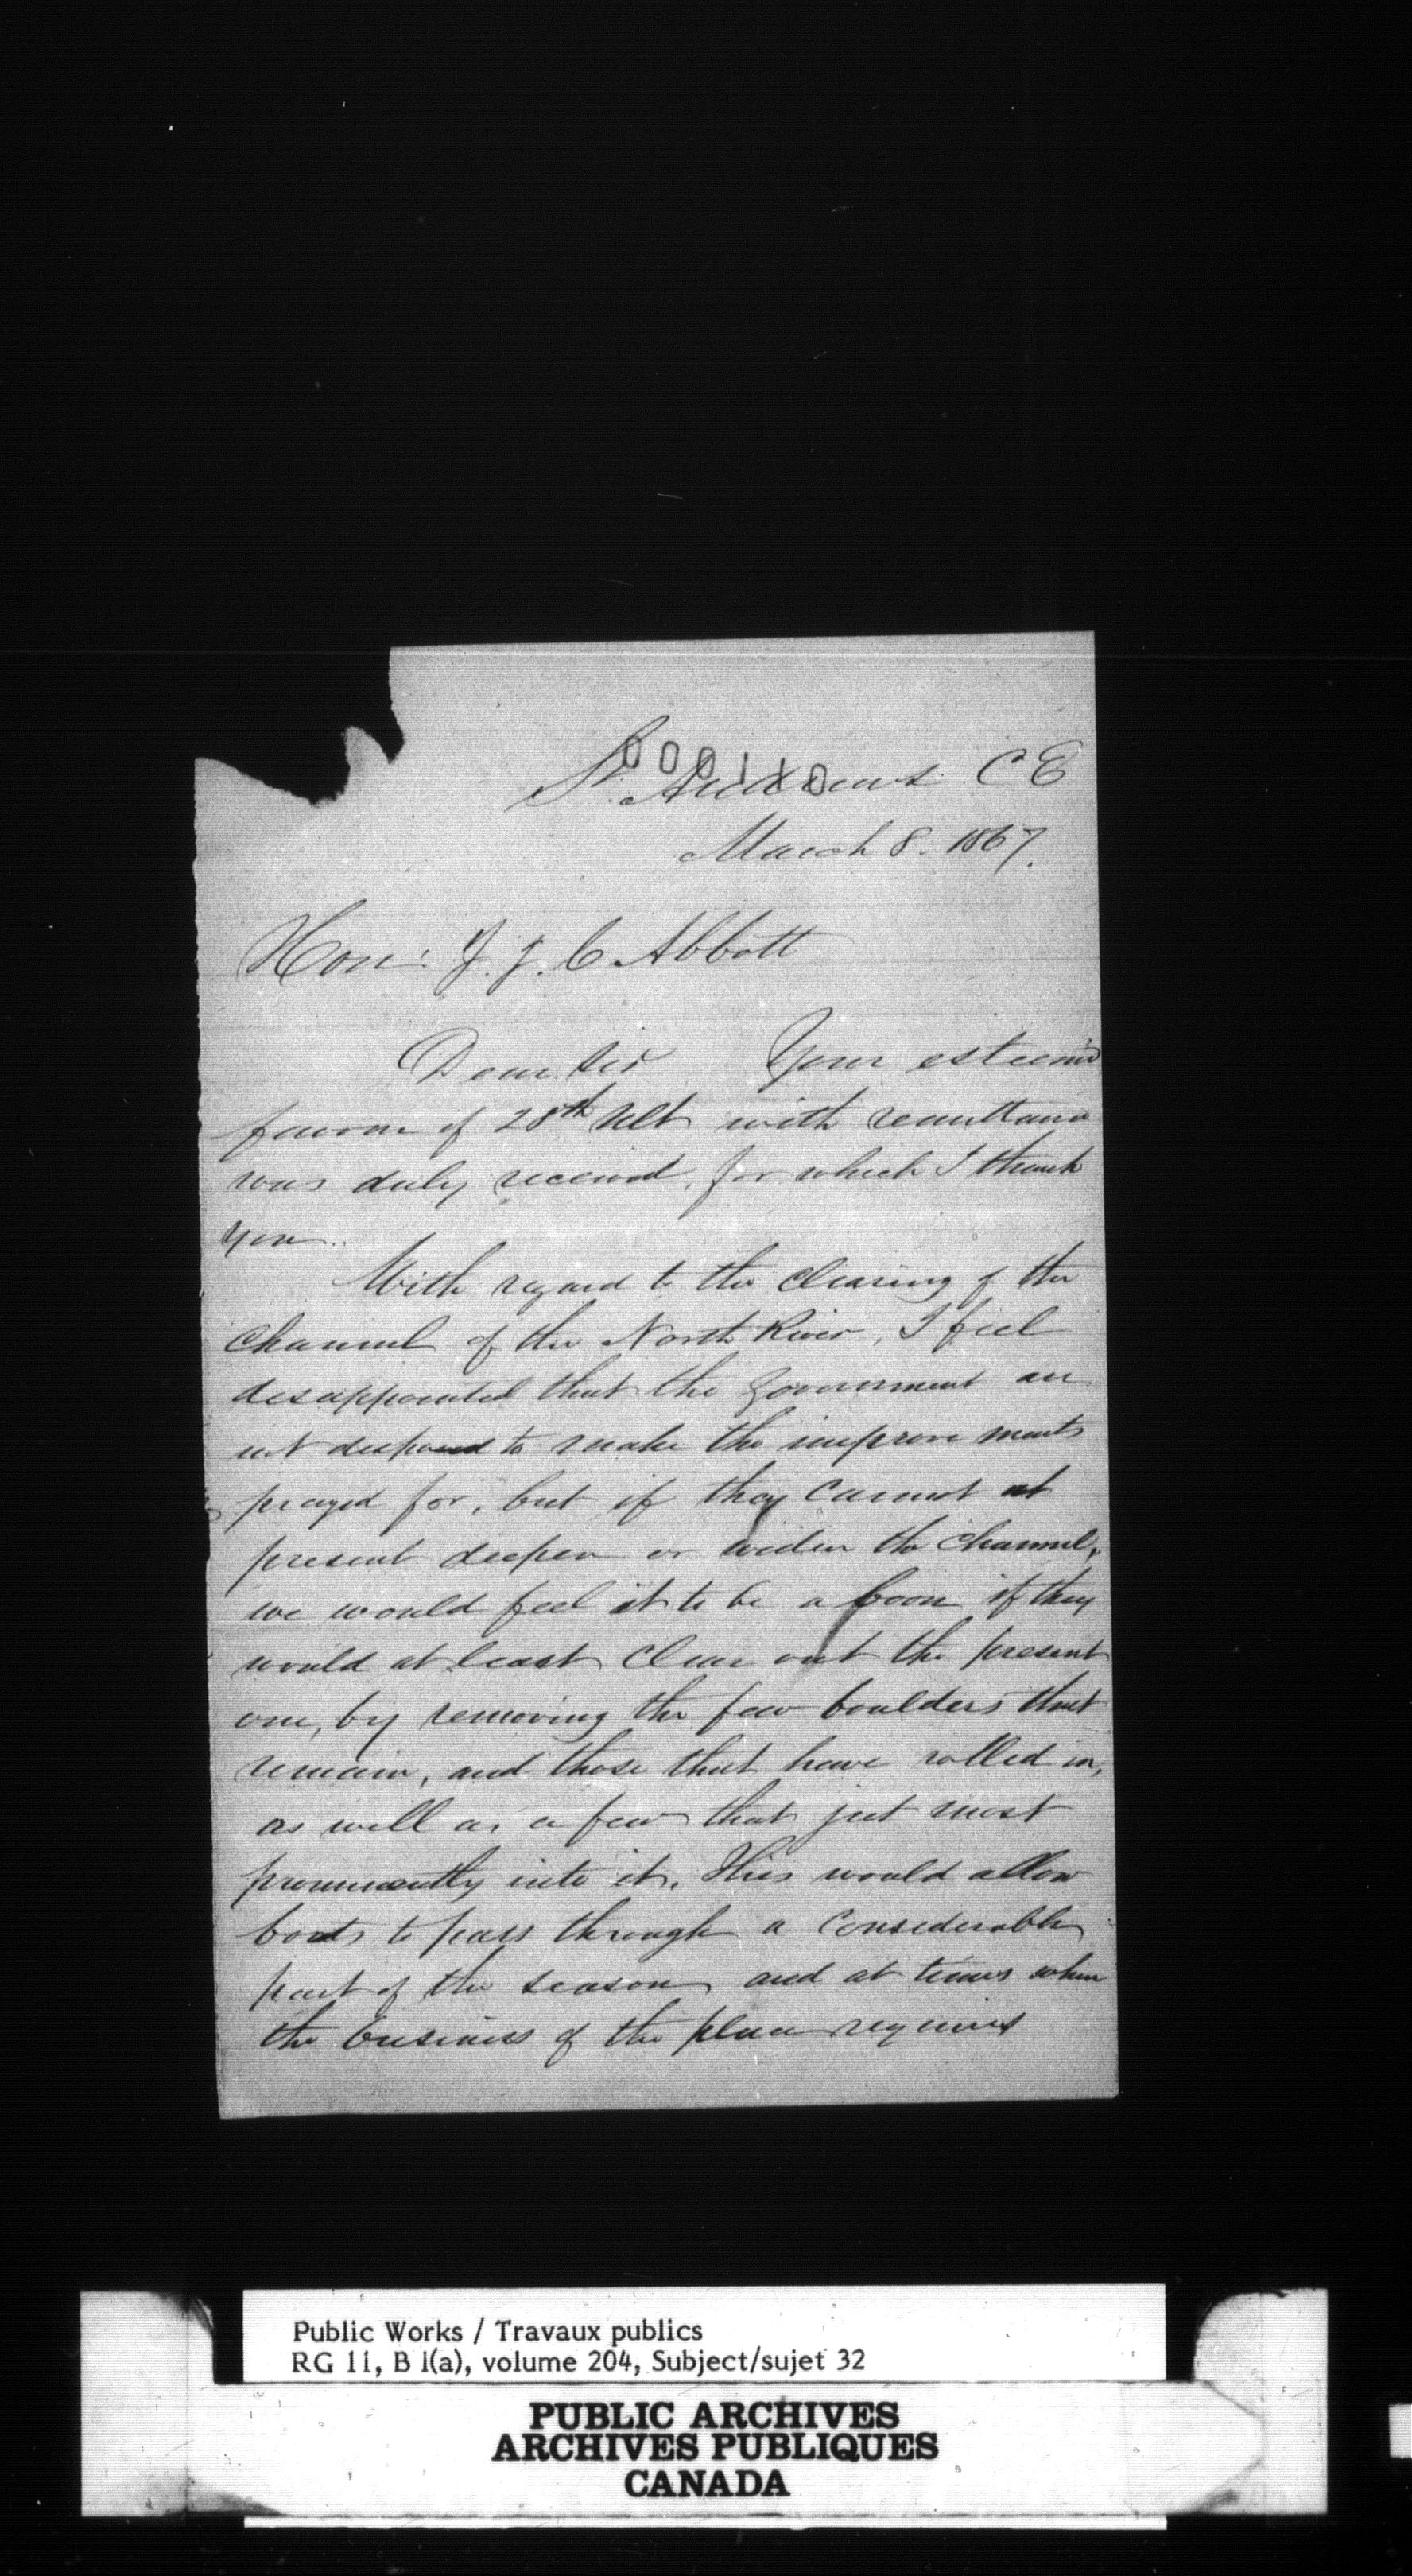 000110
St. Andrews C E
March 8. 1867.
Hon: J. J. C Abbott
Dear Sir Your esteem'd
favour of 28th Ult with remittance
was duly received, for which I thank
you.
With regard to the clearing of the
Channel of the North River, I feel
disappointed that the Government are
not disposed to make the improvements
prayed for, but if they cannot at
present deepen or widen the channel,
we would feel it to be a boon if they
would at least clear out the present
one, by removing the few boulders that
remain, and those that have rolled in,
as well as a few that jut most
prominently into it. This would allow
boats to pass through a considerable
part of the season and at times when
the business of the place requires
Public Works / Travaux publics
RG 11, B 1(a), volume 204, Subject/sujet 32
PUBLIC ARCHIVES
ARCHIVES PUBLIQUES
CANADA